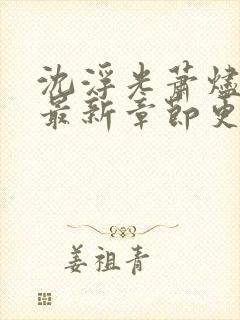 沈浮光萧烬
最新章节更
姜祖青